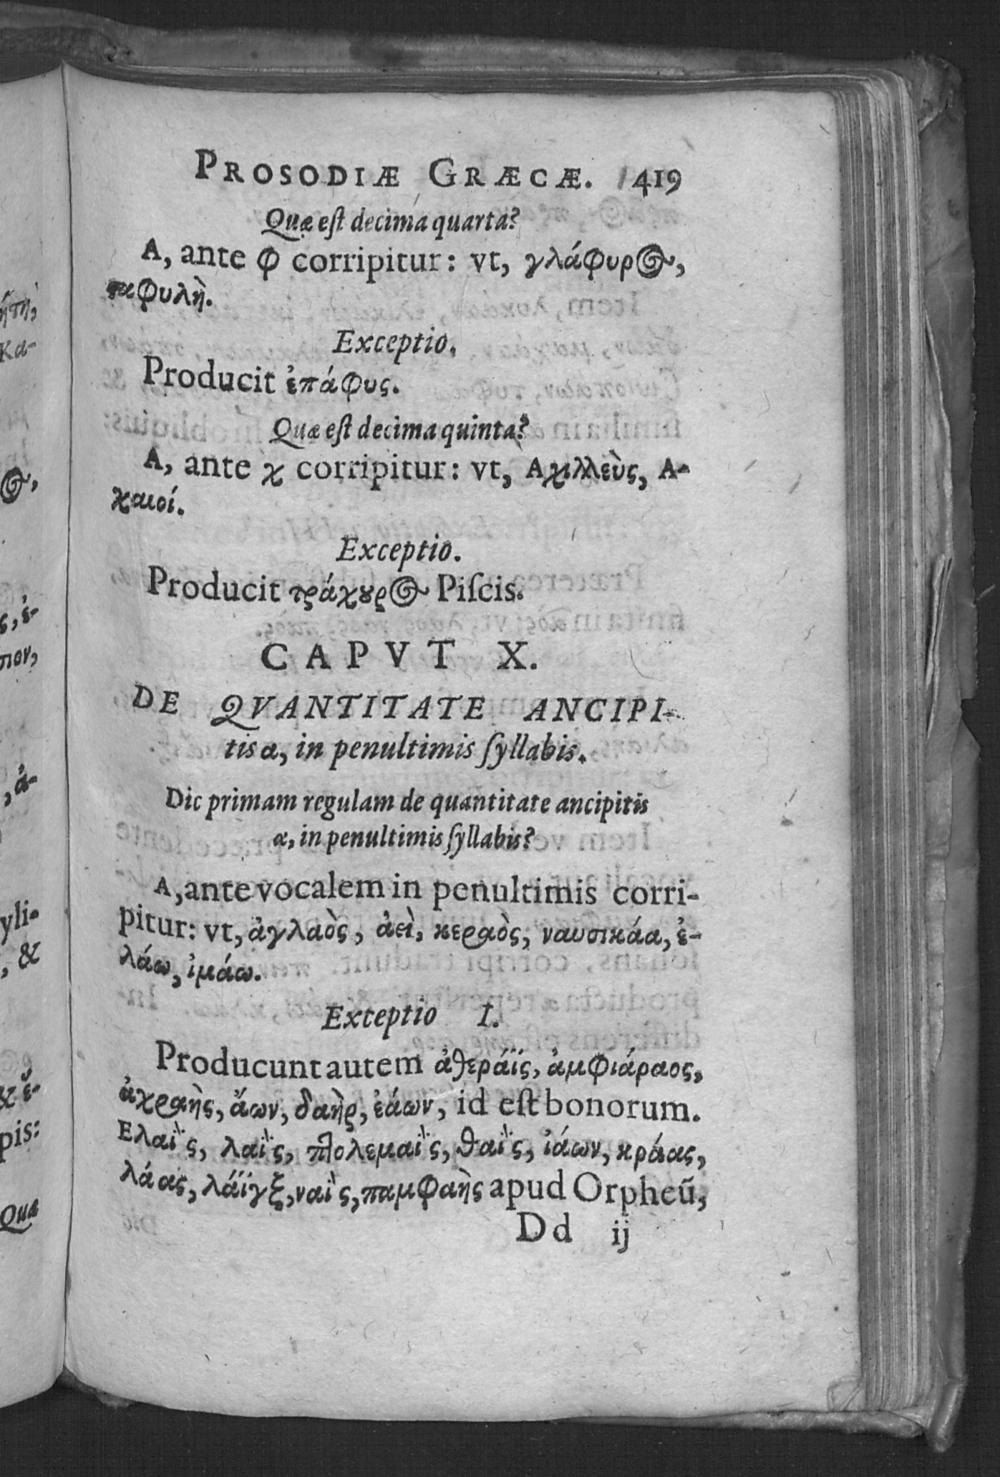 PROSODIÆ GRÆCÆ. 419
Quæ est decima quarta?
A, ante φ corripitur: vt, γλάφυρος,
ταφυλὴ.
Exceptio.
Producit ἐπάφυς.
Quæ est decima quinta?
A, ante χ corripitur: vt, Αχιλλεὺς, Α-
χαιοί.
Exceptio.
Producit τράχουρος Piscis.
CAPVT X.
DE QVANTITATE ANCIPI-
tis α, in penultimis syllabis.
Dic primam regulam de quantitate ancipitis
α, in penultimis syllabis?
A, ante vocalem in penultimis corri-
pitur: vt, ἀγλαὸς, ἀεὶ, κεραὸς, ναυσικάα, ἐ-
λάω, ἱμάω.
Exceptio I.
Producunt autem ἀθεράϊς, ἀμφιάραος,
ἀκραὴς, ἄων, δαὴρ, ἐάων, id est bonorum.
Ελαῒς, λαῒς, πτολεμαῒς, θαῒς, ἰάων, κράας,
λάας, λάϊγξ, ναῒς, παμφαὴς apud Orpheū,
Dd ij
ήτη,
κα-
ος,
ς, ἐ-
πον,
, ἀ-
yli-
, &
& ἔ-
pis:
Qua